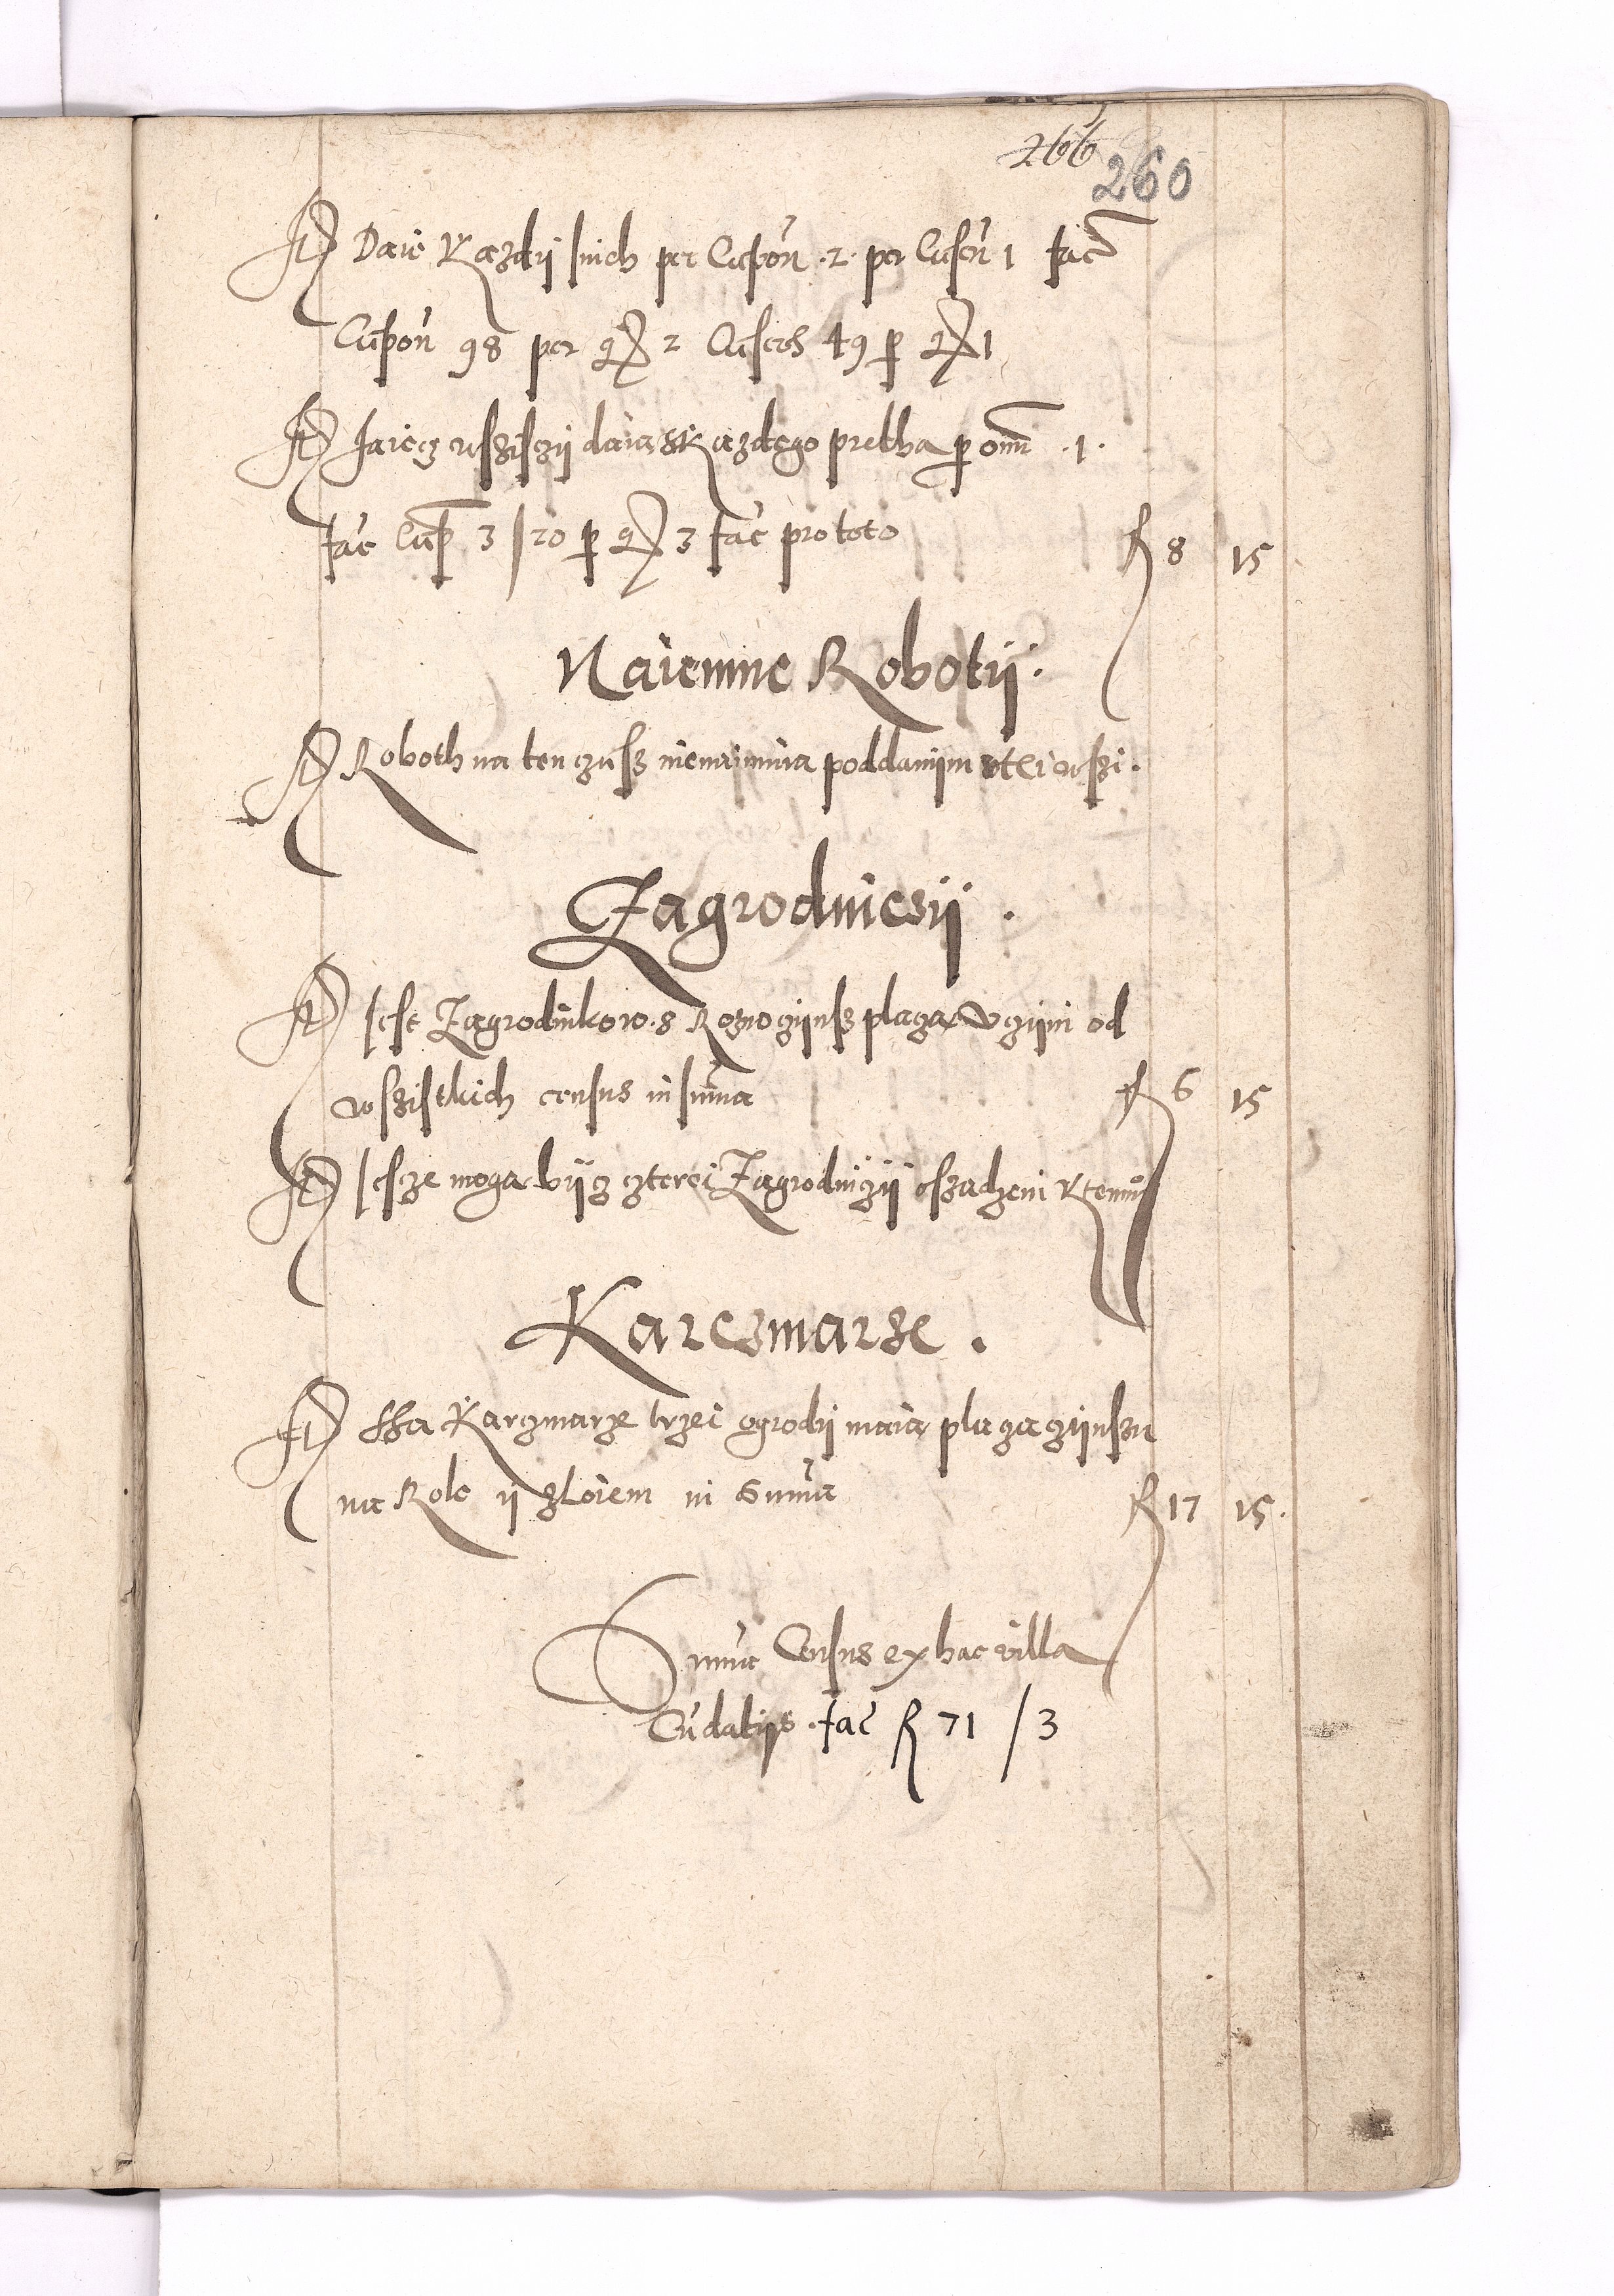 266
260
It Daie Kazdÿ snich per Capon .2. per Caseũ 1 fac̃
Capon̄ 98 per gͬ 2 Caseos 49 ꝑ gͬ 1
It Jaiecz wsziscÿ daia skazdego pretha ꝑ omnē .1.
fac̃ Cap̃ 3 / 20 ꝑ gͬ 3 fac̃ pro toto
R 8 15
Naiemne Robotÿ.
It Roboth na ten czasz nienaimuia poddanÿm wtei wszi.
Zagrodniczÿ .
It Jest Zagrodnikow .8 Roznoczÿnsz placza vczÿni od
wszistkich census in suma
R 6 15
It Jescze moga bÿcz czterei Zagrodniczÿ oszadzeni Ktemu
Karczmarze .
It ssa Karczmarze trzei ogrodÿ maia placza czÿnszu
na Role ÿ zloiem in Suma
R 17 15.
Suma Census ex hac villa
Cũ datÿs fac̃ R 71 / 3